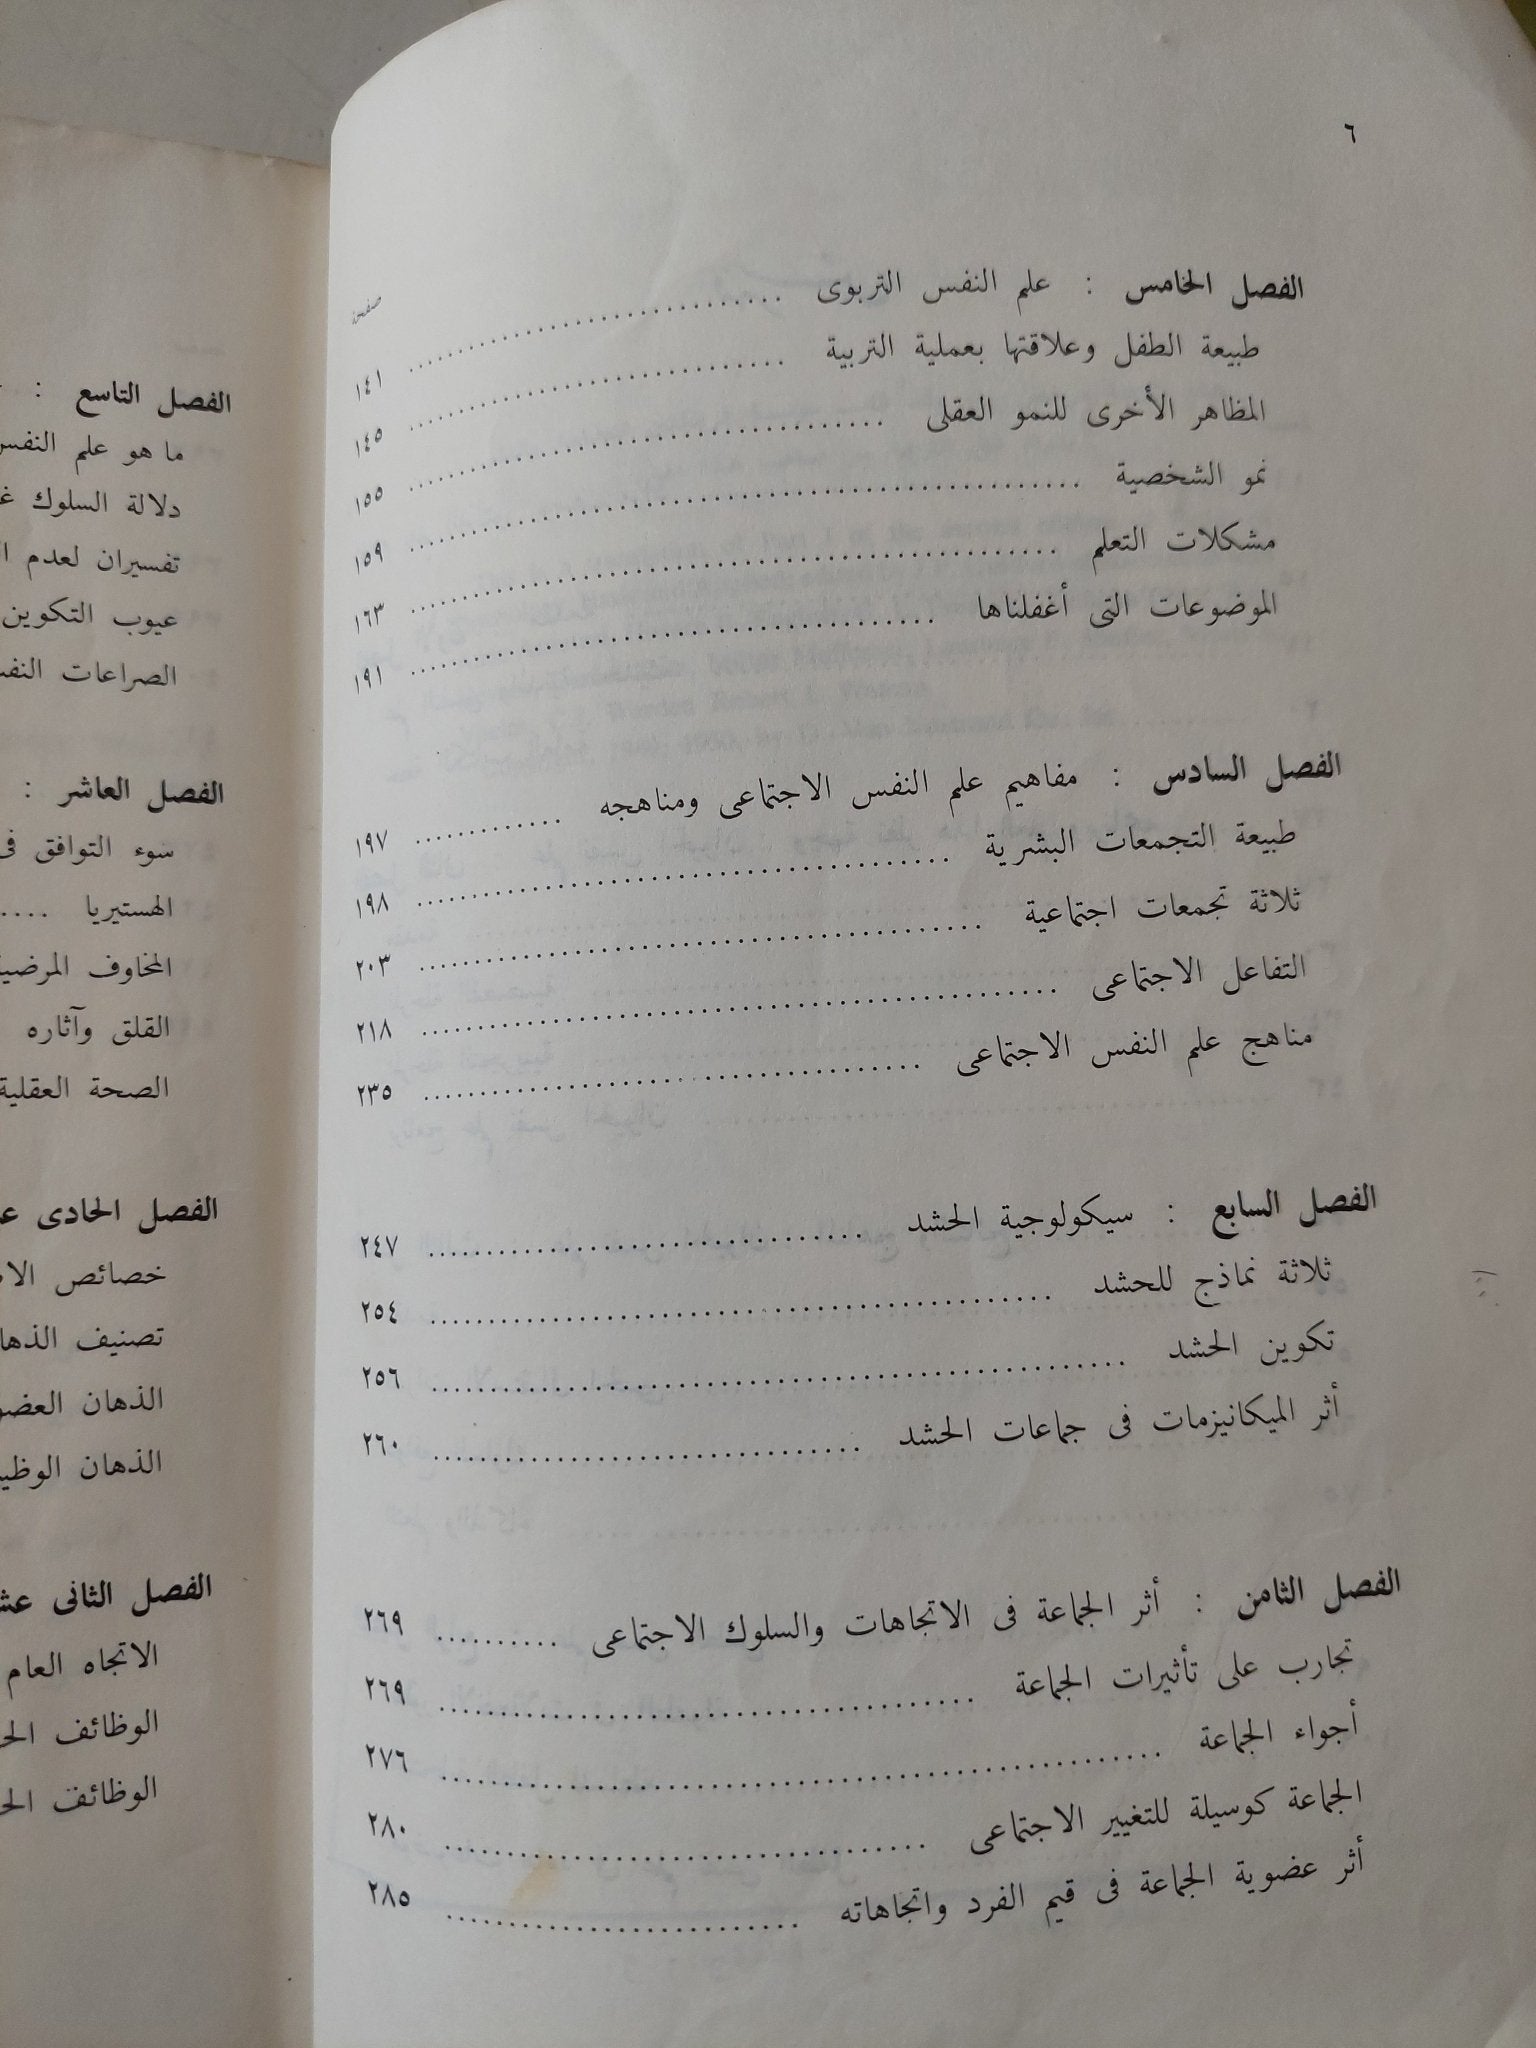 ٦
صفحة
الفصل الخامس : علم النفس التربوى .......................... ١٤١
طبيعة الطفل وعلاقتها بعملية التربية .......................... ١٤٥
المظاهر الأخرى للنمو العقلى .......................... ١٥٥
نمو الشخصية .......................... ١٥٩
مشكلات التعلم .......................... ١٦٣
الموضوعات التى أغفلناها .......................... ١٩١
الفصل السادس : مفاهيم علم النفس الاجتماعى ومناهجه ............ ١٩٧
طبيعة التجمعات البشرية .......................... ١٩٨
ثلاثة تجمعات اجتماعية .......................... ٢٠٣
التفاعل الاجتماعى .......................... ٢١٨
مناهج علم النفس الاجتماعى .......................... ٢٣٥
الفصل السابع : سيكولوجية الحشد .......................... ٢٤٧
ثلاثة نماذج للحشد .......................... ٢٥٤
تكوين الحشد .......................... ٢٥٦
أثر الميكانيزمات فى جماعات الحشد .......................... ٢٦٠
الفصل الثامن : أثر الجماعة فى الاتجاهات والسلوك الاجتماعى .......... ٢٦٩
تجارب على تأثيرات الجماعة .......................... ٢٦٩
أجواء الجماعة .......................... ٢٧٦
الجماعة كوسيلة للتغيير الاجتماعى .......................... ٢٨٠
أثر عضوية الجماعة فى قيم الفرد واتجاهاته .......................... ٢٨٥
الفصل التاسع :
ما هو علم النفس
دلالة السلوك
تفسيران لعدم
عيوب التكوين
الصراعات
الفصل العاشر :
سوء التوافق فى
الهستيريا ....
المخاوف المرضية
القلق وآثاره
الصحة العقلية
الفصل الحادى
خصائص
تصنيف
الذهان
الذهان
الفصل الثانى
الاتجاه العام
الوظائف
الوظائف